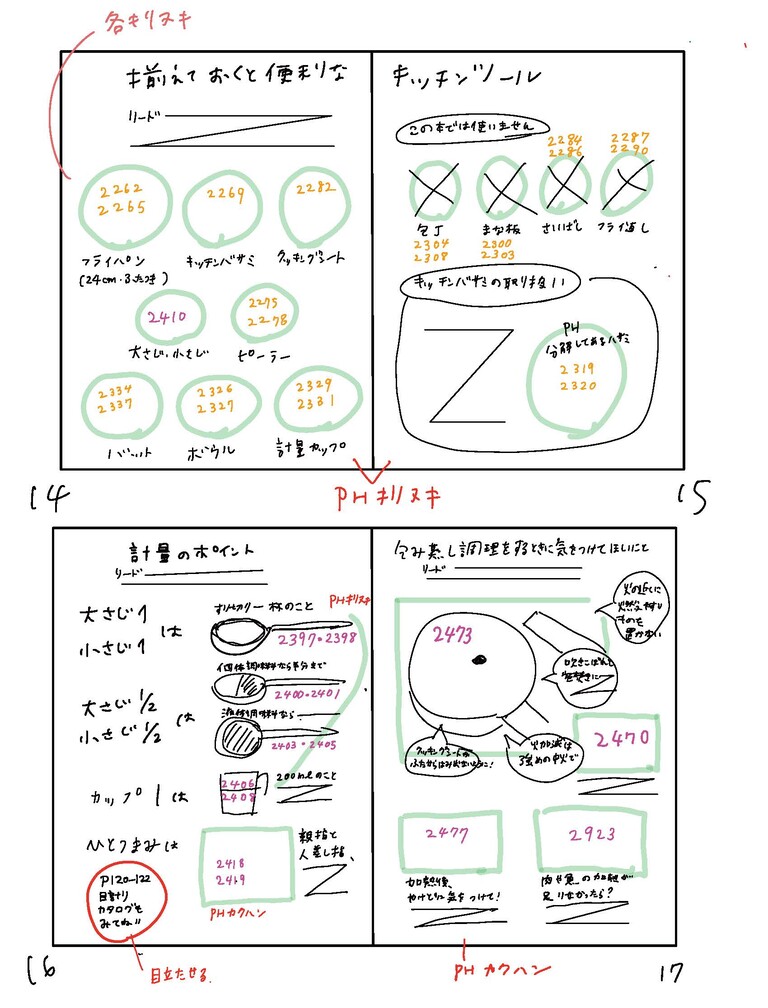 各キリヌキ
揃えておくと便利な
リード
2262
2265
フライパン
(24cm・ふたつき)
2269
キッチンバサミ
2282
クッキングシート
2410
大さじ・小さじ
2275
2278
ピーラー
2334
2337
バット
2326
2327
ボウル
2329
2331
計量カップ
キッチンツール
この本では使いません
包丁
2304
2308
まな板
2300
2303
2284
2286
さいばし
2287
2290
フライ返し
キッチンバサミの取り扱い
PH
分解してあるハサミ
2319
2320
14
PHキリヌキ
15
計量のポイント
リード
大さじ1
小さじ1
は
すりきり一杯のこと
PHキリヌキ
2397・2398
大さじ1/2
小さじ1/2
は
個体調味料なら半分まで
2400・2401
液体調味料なら
2403・2405
カップ1は
2406
2408
200mlのこと
ひとつまみは
2418
2419
PHカクハン
親指と
人差し指、
P120-122
目計り
カタログを
みてね!!
目立たせる
16
包み蒸し調理をするときに気をつけてほしいこと
リード
2473
火の近くに
燃えやすい
ものを
置かない
吹きこぼれ
空焚きに
クッキングシートが
ふたからはみ出ないように!
火加減は
強めの中火で
2470
2477
加熱後、
やけどに気をつけて!
2923
肉や魚の加熱が
足りなかったら?
PHカクハン
17